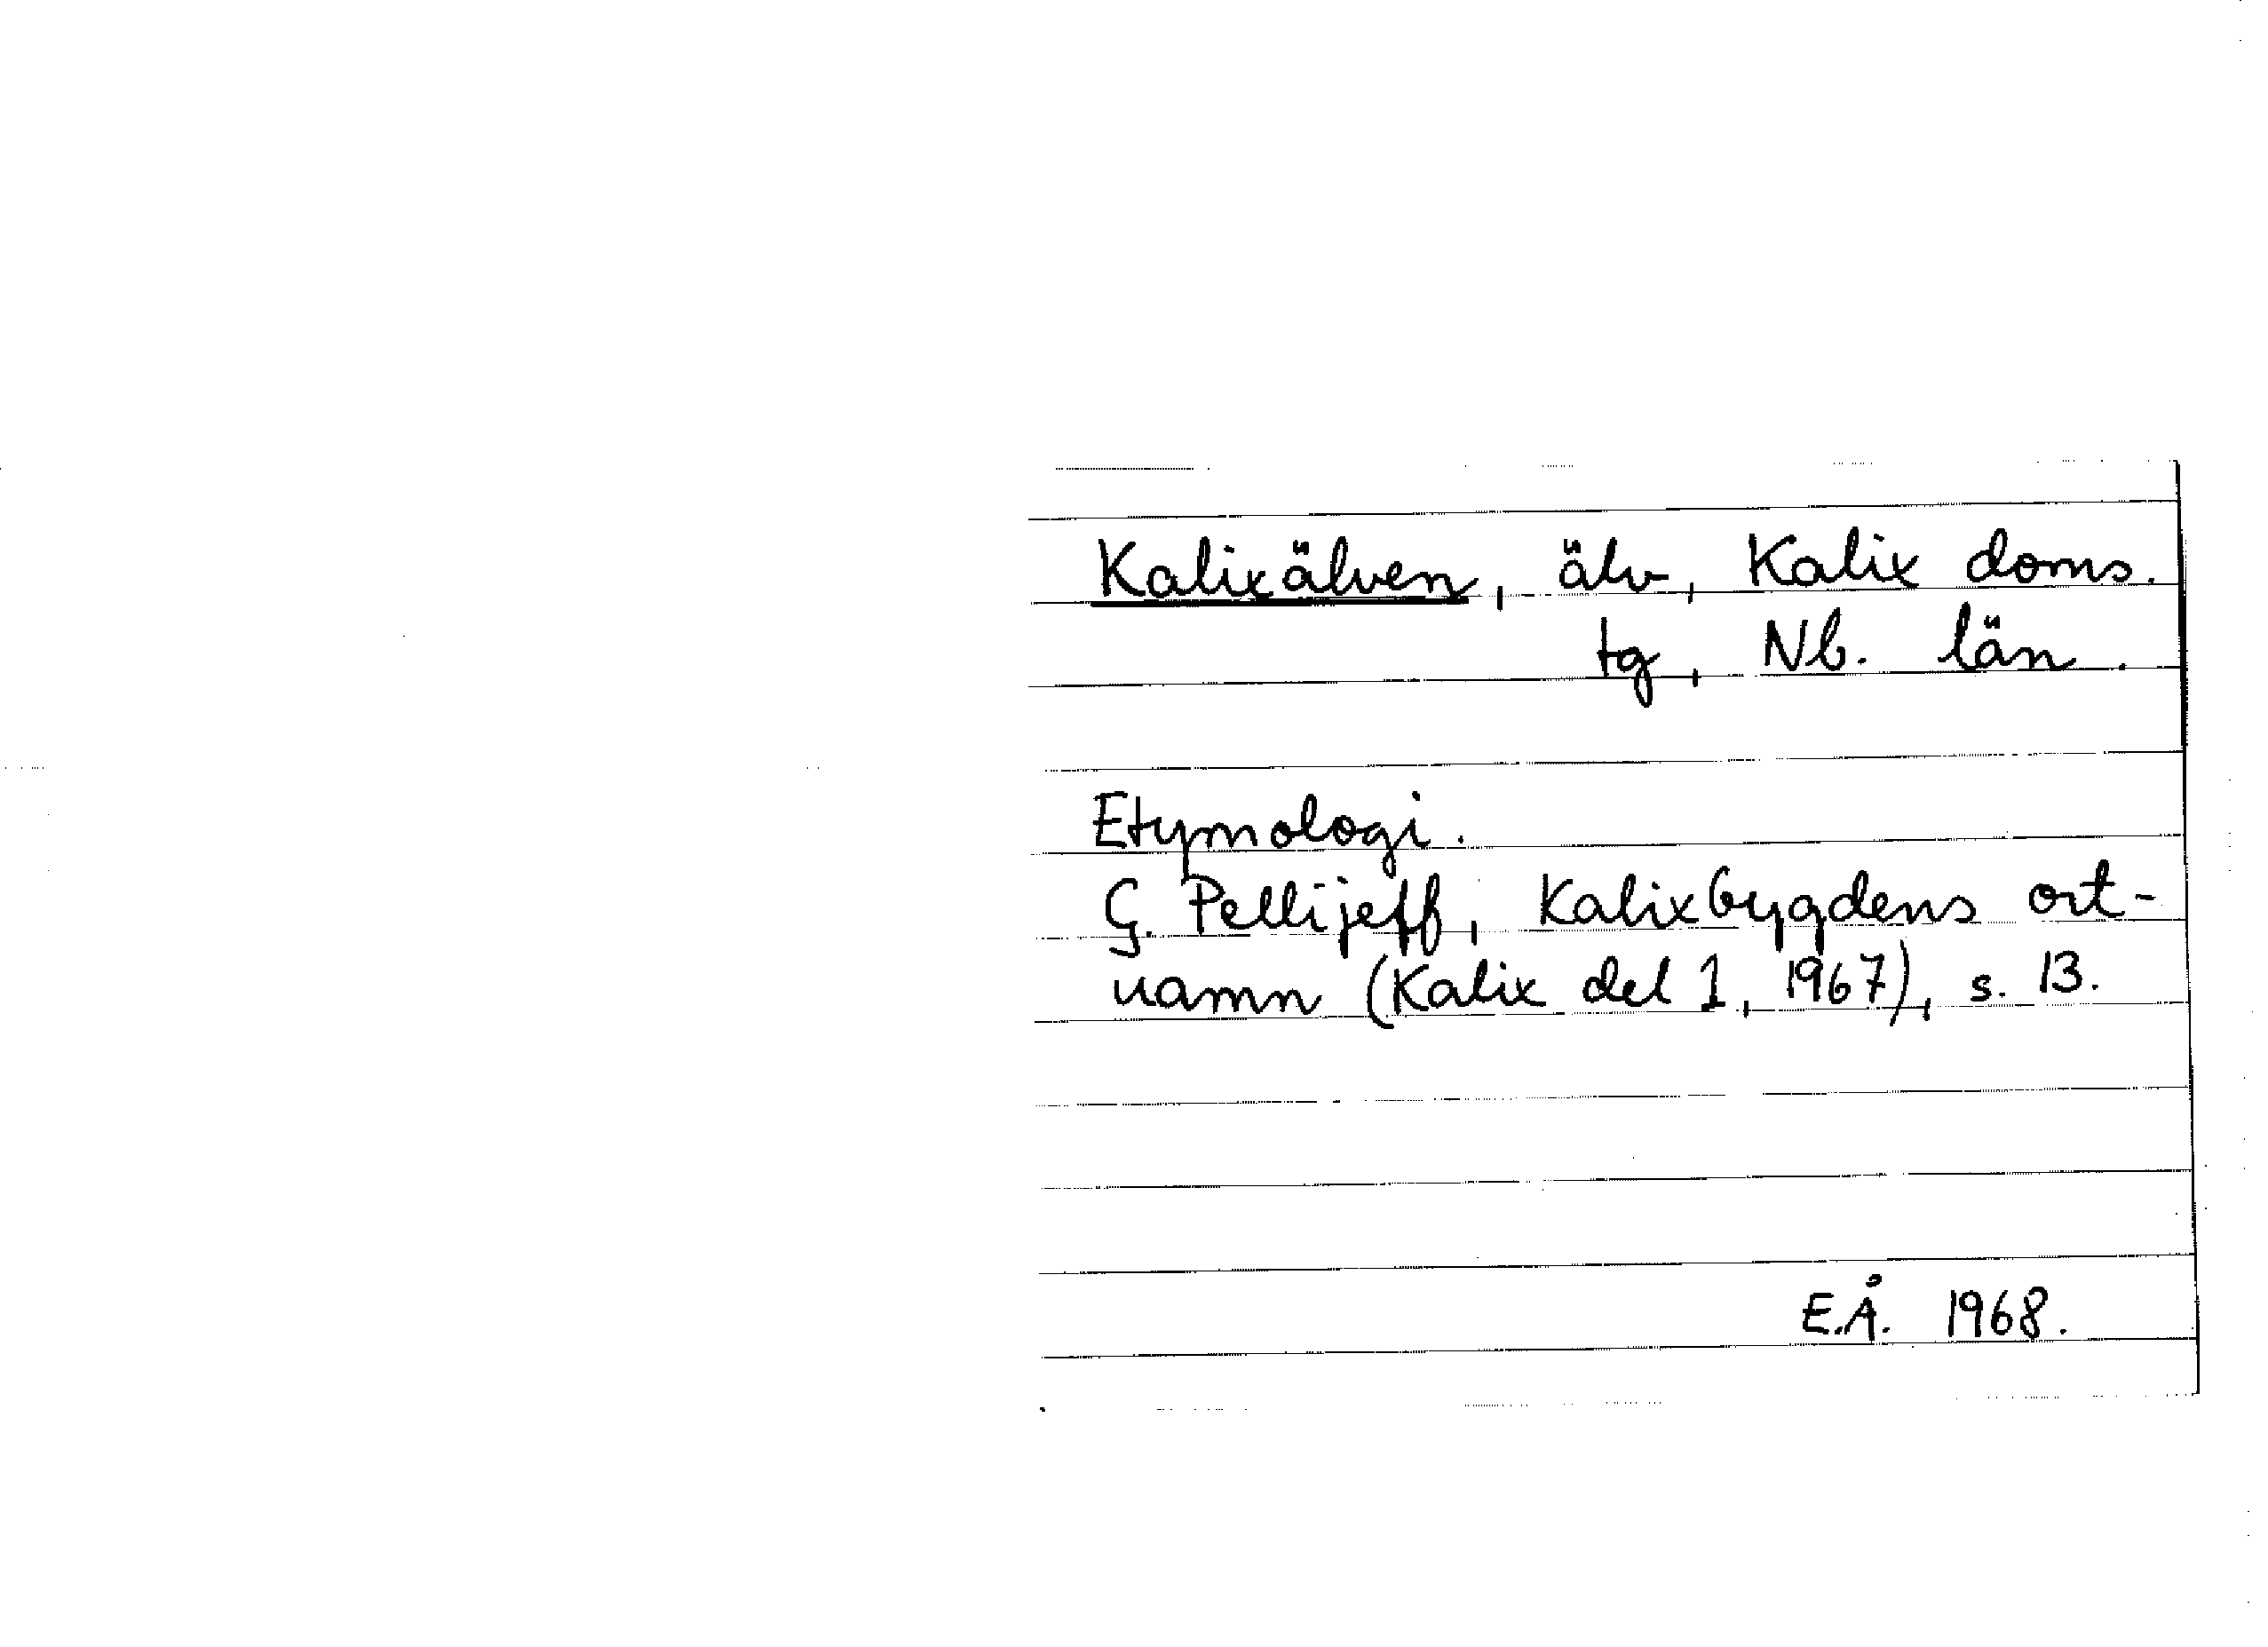 Kalixälven, älv, Kalix doms.
tg, Nb. län.
Etymologi.
G. Pellijeff, Kalixbygdens ort-
namn (Kalix del 1, 1967), s. 13.
E.Å. 1968.